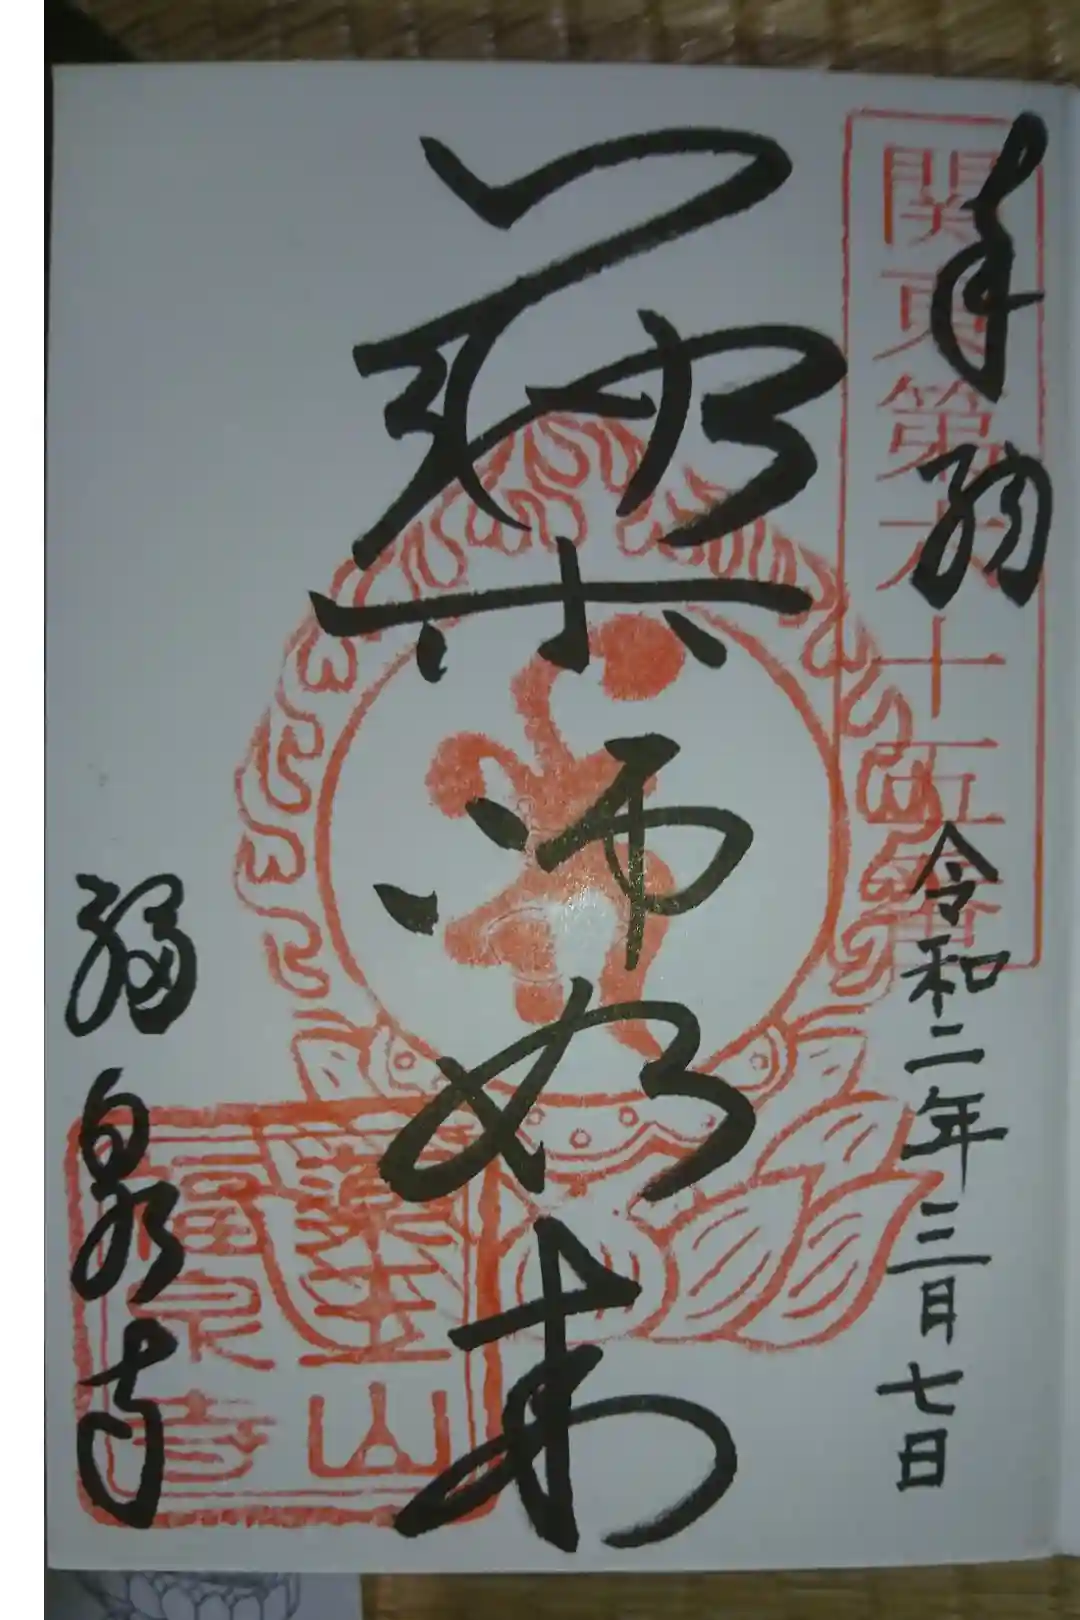 奉拝
関東第六十五番
令和二年三月七日
薬師如来
福泉寺
薬王山
福泉寺